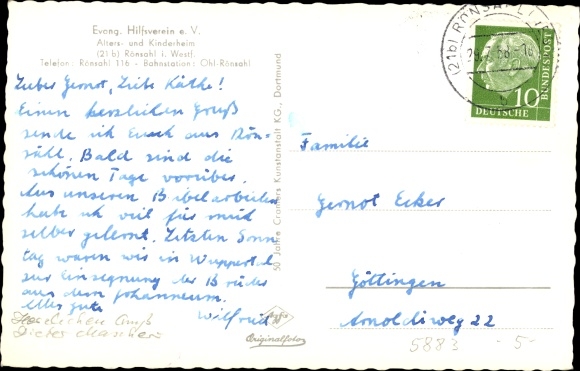 Evang. Hilfsverein e. V.
Alters- und Kinderheim
(21 b) Rönsahl i. Westf.
Telefon: Rönsahl 116 - Bahnstation: Ohl-Rönsahl
Lieber Gernot, Liebe Käthe!
Einen herzlichen Gruß
sende ich Euch aus Rön-
sahl. Bald sind die
schönen Tage vorüber.
Aus unseren Bibelarbeiten
habe ich viel für mich
selber gelernt. Letzten Sonn
tag waren wir in Wuppertal
zur Einsegnung der Brüder
aus dem Johanneum.
Alles gute
Wilfried
Herzlichen Gruß
Dieter
50 Jahre Cramers Kunstanstalt KG., Dortmund
Agfa
Originalfoto
(21b) RÖNSAHL
10
DEUTSCHE
BUNDESPOST
Familie
Gernot Ecker
Göttingen
Arnoldiweg 22
5883 -5-